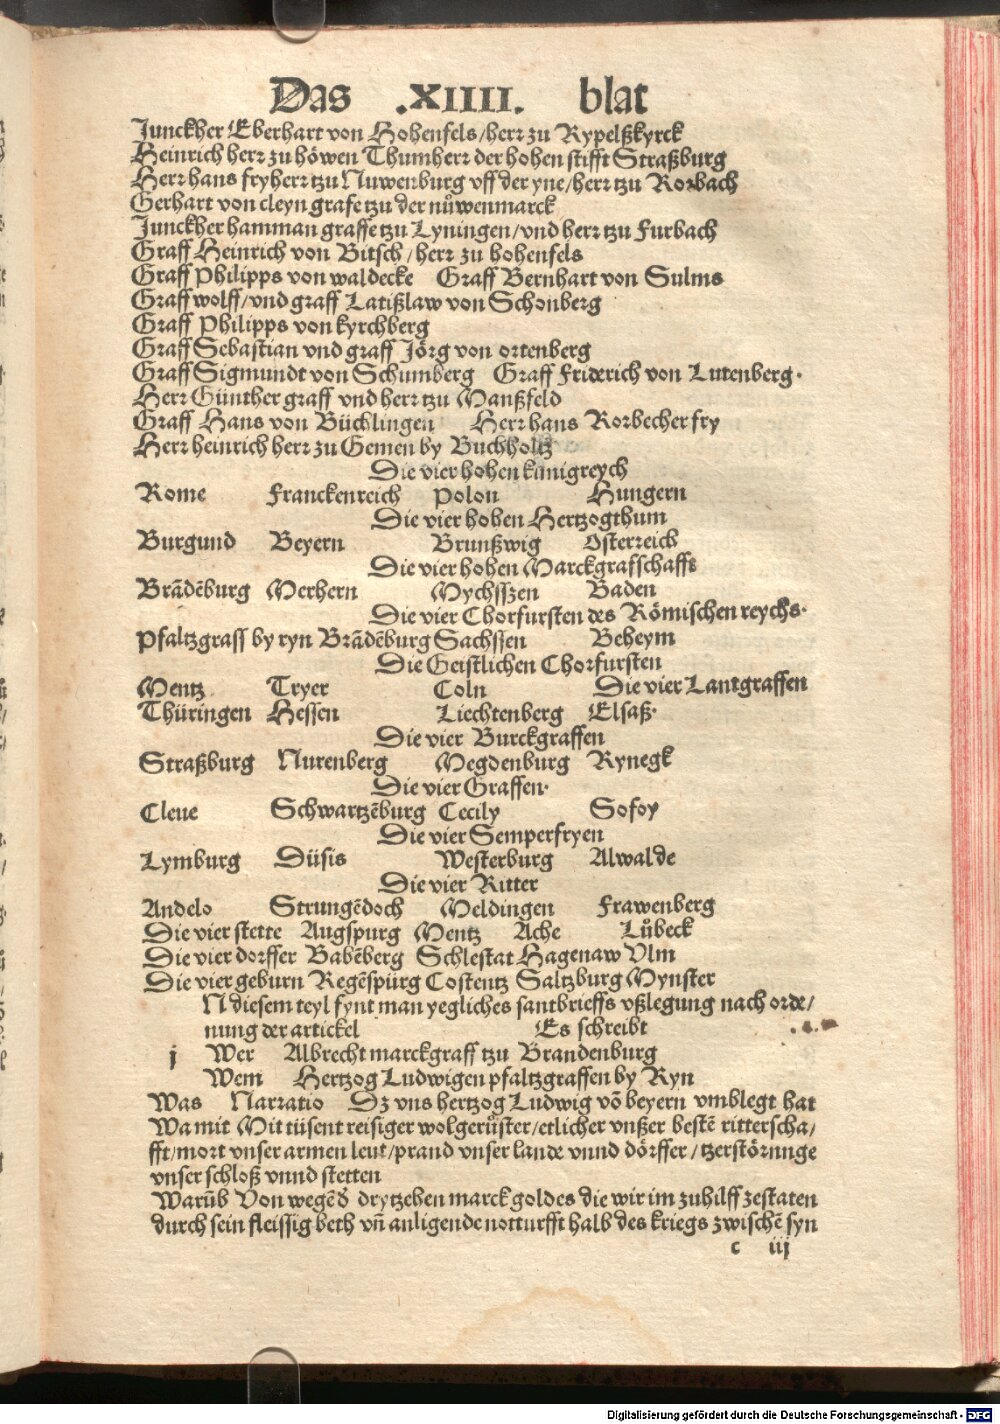 Das .XIIII. blat
Junckher Eberhart von Hohenfels/herr zu Rypelßkyrck
Heinrich herr zu höwen Thumherr der hohen stifft Straßburg
Herr hans fryherr tzu Nuwenburg vff der yne/herr tzu Rorbach
Gerhart von cleyn grafe tzu der nůwenmarck
Junckher hamman graffe tzu Lyningen/vnd herr tzu Furbach
Graff Heinrich von Bitsch/herr zu hohenfels
Graff Philipps von waldecke Graff Bernhart von Sulms
Graff wolff/vnd graff Latißlaw von Schonberg
Graff Philipps von kyrchberg
Graff Sebastian vnd graff Jörg von ortenberg
Graff Sigmundt von Schumberg Graff Friderich von Lutenberg·
Herr Günther graff vnd herr tzu Manßfeld
Graff Hans von Büchlingen Herr hans Rorbecher fry
Herr heinrich herr zu Gemen by Buchholtz
Die vier hohen künigreych
Rome Franckenreich Polon Hungern
Die vier hohen Hertzogthum
Burgund Beyern Brunßwig Osterreich
Die vier hohen Marckgrafschaffs
Brādēburg Merhern Mychsszen Baden
Die vier Chorfursten des Römischen reychs·
Pfaltzgraff by ryn Brādēburg Sachssen Beheym
Die Geistlichen Chorfursten
Mentz Tryer Coln Die vier Lantgraffen
Thüringen Hessen Liechtenberg Elsaß·
Die vier Burckgraffen
Straßburg Nurenberg Megdenburg Rynegk
Die vier Graffen·
Cleue Schwartzēburg Cecily Sofoy
Die vier Semperfryen
Lymburg Düsis Westerburg Alwalde
Die vier Ritter
Andelo Strungēdoch Meldingen Frawenberg
Die vier stette Augspurg Mentz Ache Lůbeck
Die vier dorffer Babēberg Schlestat Hagenaw Vlm
Die vier geburn Regēspürg Costentz Saltzburg Mynster
N diesem teyl fynt man yegliches santbrieffs vßlegung nach orde/
nung der artickel Es schreibt
j Wer Albrecht marckgraff tzu Brandenburg
Wem Hertzog Ludwigen pfaltzgraffen by Ryn
Was Narratio Dz vns hertzog Ludwig vō beyern vmblegt hat
Wa mit Mit tüsent reisiger wolgerůster/etlicher vnßer bestē ritterscha/
fft/mort vnser armen leut/prand vnser lande vnnd dörffer/tzerstörunge
vnser schloß vnnd stetten
Warūb Von wegē d drytzehen marck goldes die wir im zuhilff zestaten
durch sein fleissig beth vn̄ anligende notturfft halb des kriegs zwischē syn
c iij
Digitalisierung gefördert durch die Deutsche Forschungsgemeinschaft - DFG